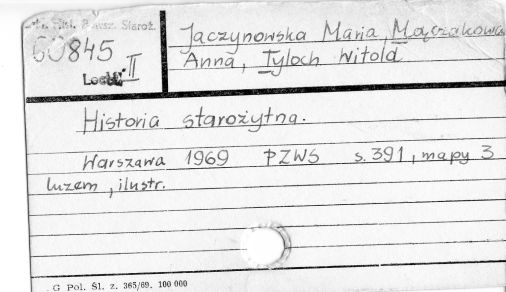 Jaczynowska Maria, Mączakowa
Anna, Tyloch Witold
Staroż.
60845
II
Historia starożytna.
Warszawa 1969 PZWS s. 391, mapy 3
luzem, ilustr.
G Pol. Śl. z. 365/69. 100 000